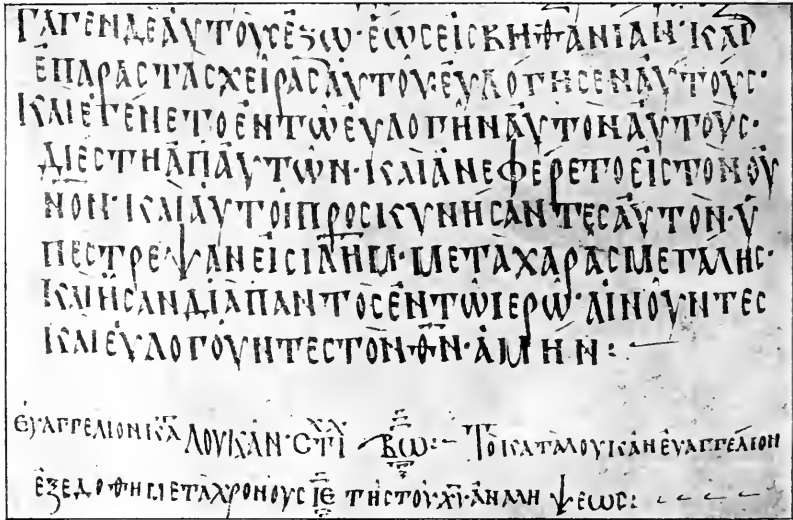 ΓΑΓΕΝΔΕΑΥΤΟΥϹΕΞΩ·ΕΩϹΕΙϹΒΗΘΑΝΙΑΝ·ΚΑΙ
ΕΠΑΡΑϹΤΑϹΧΕΙΡΑϹΑΥΤΟΥ·ΕΥΛΟΓΗϹΕΝΑΥΤΟΥϹ·
ΚΑΙΕΓΕΝΕΤΟΕΝΤΩΕΥΛΟΓΗΝΑΥΤΟΝΑΥΤΟΥϹ·
ΔΙΕϹΤΗΑΠΑΥΤΩΝ·ΚΑΙΑΝΕΦΕΡΕΤΟΕΙϹΤΟΝΟΥ
ΝΟΝ·ΚΑΙΑΥΤΟΙΠΡΟϹΚΥΝΗϹΑΝΤΕϹΑΥΤΟΝ·Υ
ΠΕϹΤΡΕΨΑΝΕΙϹΙΛΗΜ·ΜΕΤΑΧΑΡΑϹΜΕΓΑΛΗϹ·
ΚΑΙΗϹΑΝΔΙΑΠΑΝΤΟϹΕΝΤΩΙΕΡΩ·ΑΙΝΟΥΝΤΕϹ
ΚΑΙΕΥΛΟΓΟΥΝΤΕϹΤΟΝΘ̅Ν̅·ΑΜΗΝ:
ΕΥΑΓΓΕΛΙΟΝΚΑΤ ΛΟΥΚΑΝ·ϹΤΙΧΧ ΒΩ:– ΤΟΚΑΤΑΛΟΥΚΑΝΕΥΑΓΓΕΛΙΟΝ
ΕΞΕΔΟΘΗΜΕΤΑΧΡΟΝΟΥϹ ΙΕ ΤΗϹΤΟΥΧ̅Υ̅·ΑΝΑΛΗΨΕΩϹ: